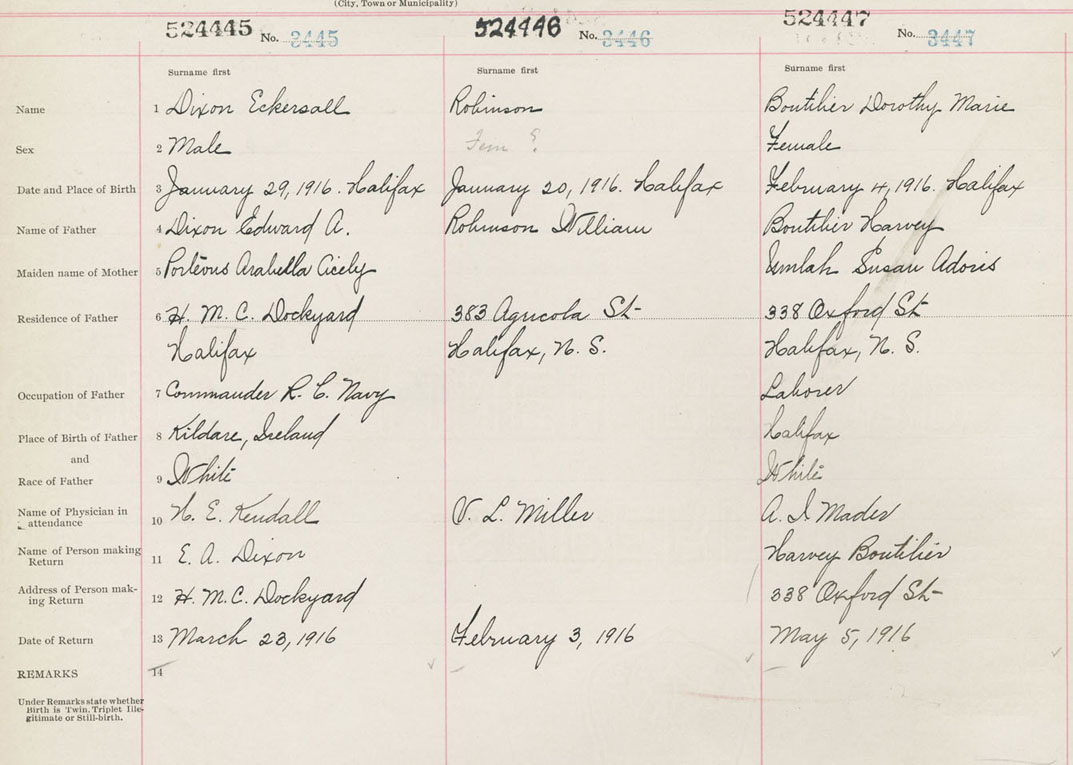 (City, Town or Municipality)
524445 No. 3445 524446 No. 3446 524447 No. 3447
Surname first Surname first Surname first
Name 1 Dixon Eckersall Robinson Boutilier Dorothy Marie
Sex 2 Male Fem ? Female
Date and Place of Birth 3 January 29, 1916. Halifax January 20, 1916. Halifax February 4, 1916. Halifax
Name of Father 4 Dixon Edward A. Robinson William Boutilier Harvey
Maiden name of Mother 5 Porteous Arabella Cicely Umlah Susan Adoris
Residence of Father 6 H. M. C. Dockyard 383 Agricola St- 338 Oxford St-
Halifax Halifax, N. S. Halifax, N. S.
Occupation of Father 7 Commander R. C. Navy Laborer
Place of Birth of Father 8 Kildare, Ireland Halifax
and
Race of Father 9 White White
Name of Physician in attendance 10 H. E. Kendall V. L. Miller A. I Mader
Name of Person making Return 11 E. A. Dixon Harvey Boutilier
Address of Person mak-ing Return 12 H. M. C. Dockyard 338 Oxford St-
Date of Return 13 March 23, 1916 February 3, 1916 May 5, 1916
REMARKS 14
Under Remarks state whether
Birth is Twin, Triplet Ille-
gitimate or Still-birth.